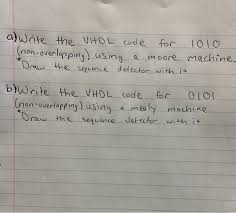 a) Write the VHDL code for 1010
(non-overlapping) using a moore machine
*Draw the sequence detector with it
b) Write the VHDL code for 0101
(non-overlapping) using a mealy machine
*Draw the sequence detector with it